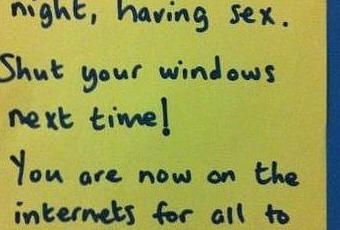 night, having sex.
Shut your windows
next time!
You are now on the
internets for all to